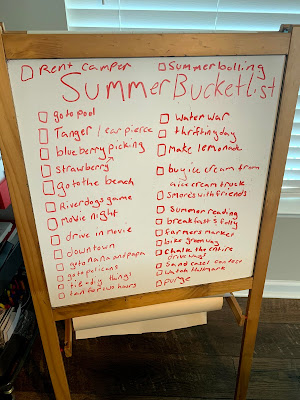 Rent camper
Summer bolling
Summer Bucket list
go to pool
Tanger / ear pierce
blueberry picking
strawberry
go to the beach
Riverdogs game
Movie night
drive in movie
downtown
go to nana and papa
go to pelicans
tie + dig thing!
tan for two hours
Water war
thrifting day
Make lemonade
buy ice cream from
a ice cream truck
Smores with friends
Summer reading
breakfast 5 fifty
farmers market
bike greenway
Chalk the entire
drive way!
Sand casel contest
watch Hallmark
purge